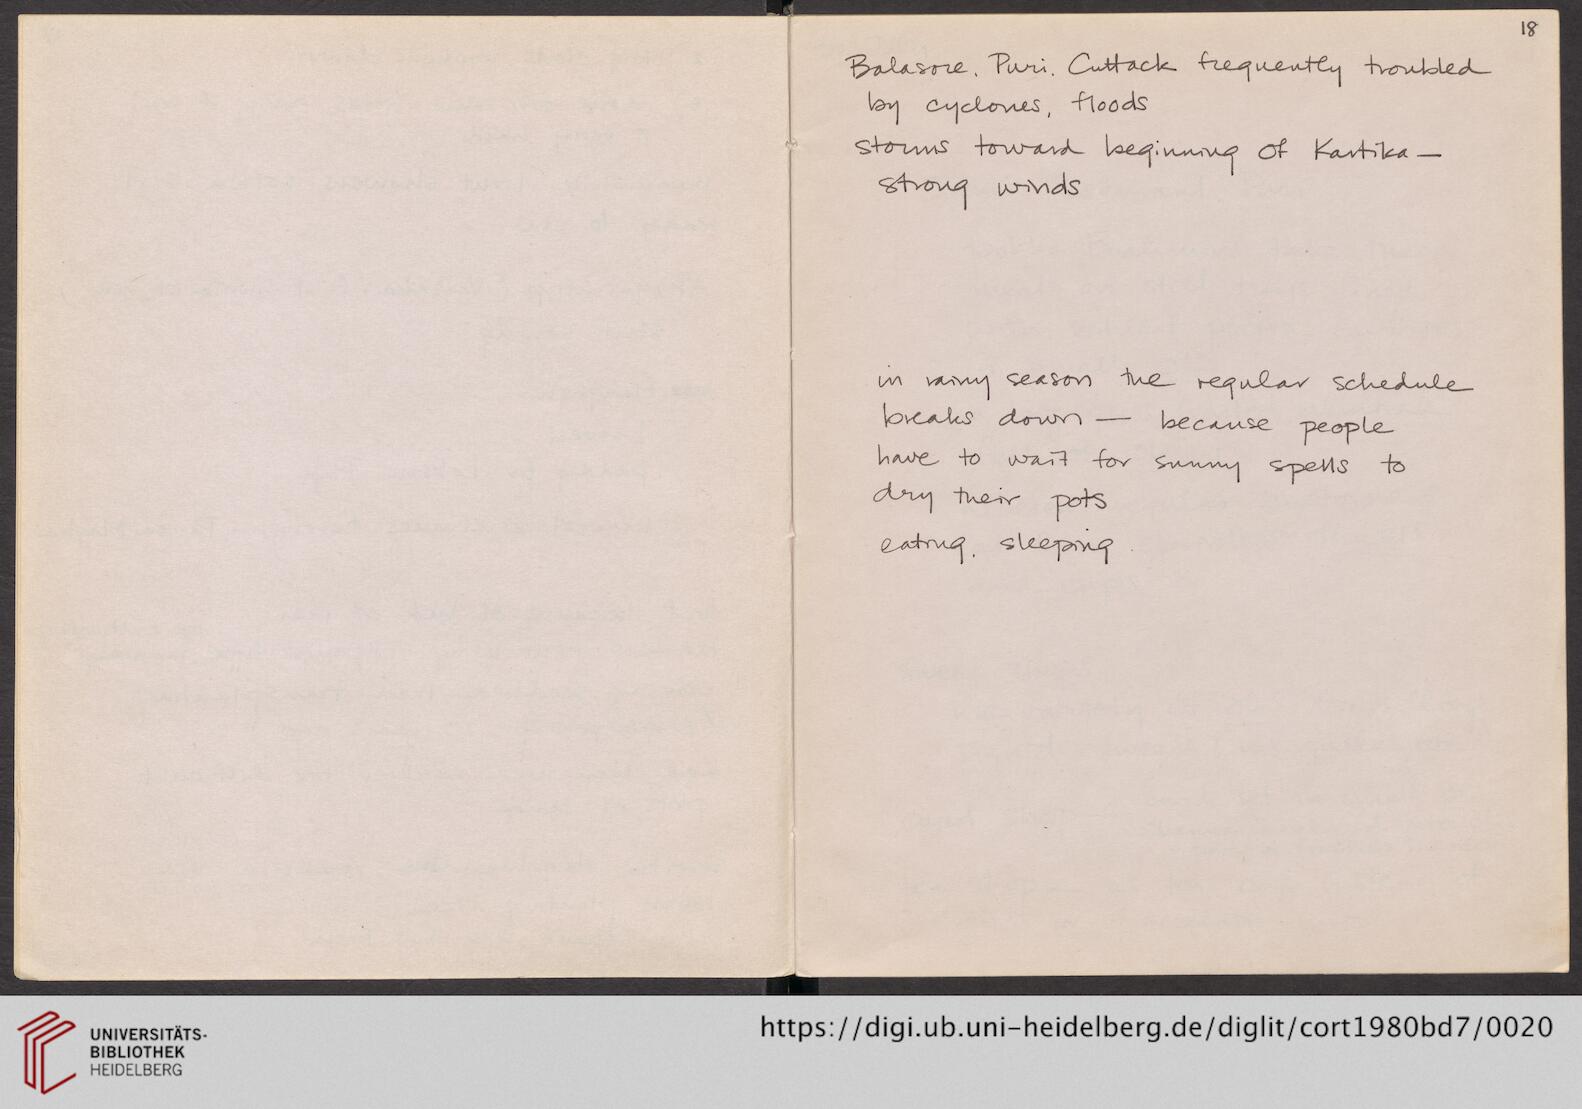 18
Balasore, Puri, Cuttack frequently troubled
by cyclones, floods
storms toward beginning of Kartika —
strong winds
in rainy season the regular schedule
breaks down — because people
have to wait for sunny spells to
dry their pots
eating, sleeping.
https://digi.ub.uni-heidelberg.de/diglit/cort1980bd7/0020
UNIVERSITÄTS-
BIBLIOTHEK
HEIDELBERG